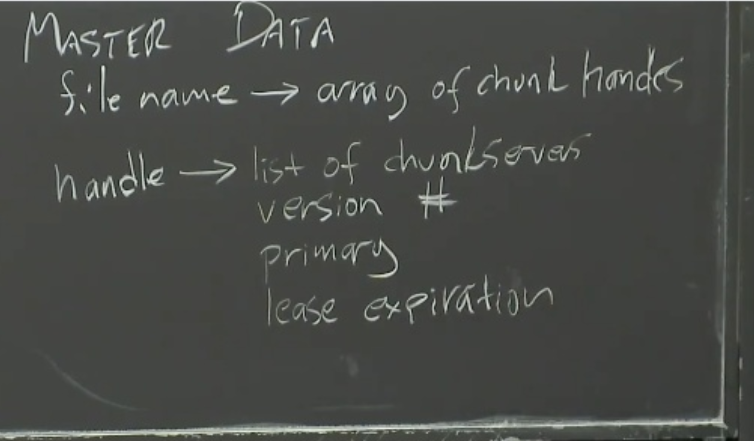 MASTER DATA
file name → array of chunk handes
handle → list of chunkservers
version #
primary
lease expiration